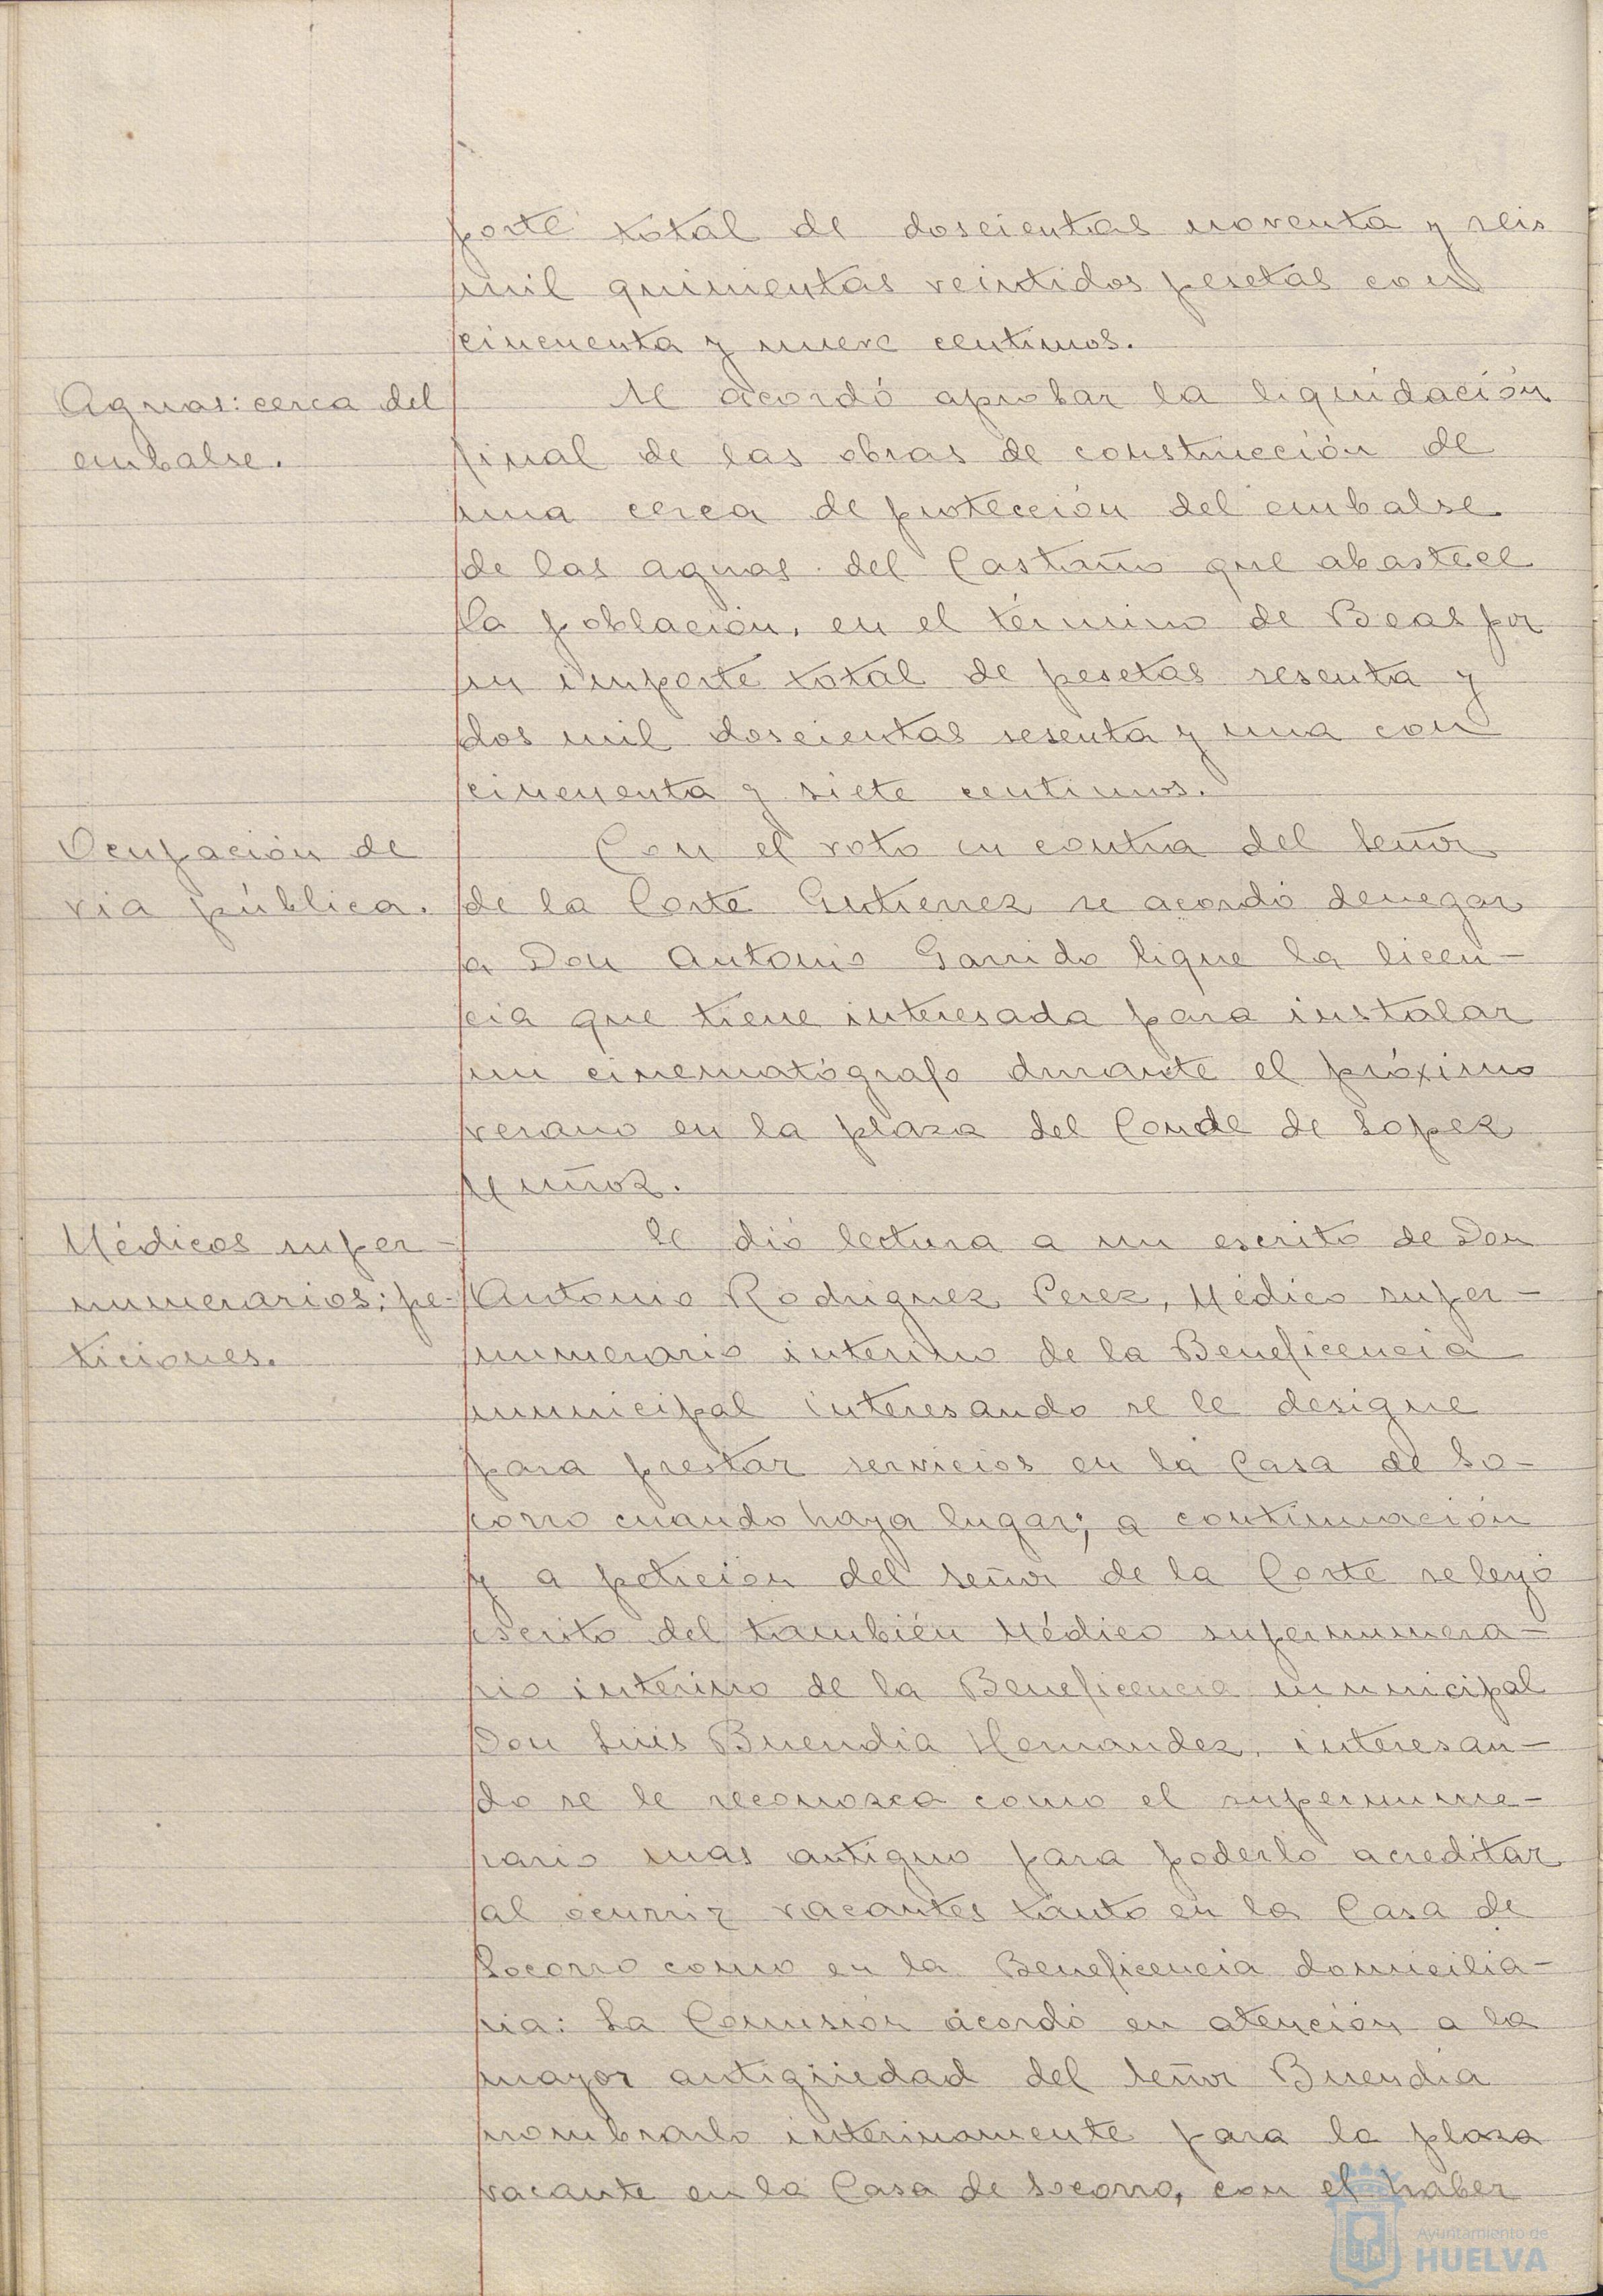 porte total de doscientas noventa y seis
mil quinientas veintidos pesetas con
cincuenta y nueve centimos.
Aguas: cerca del
embalse.
Se acordó aprobar la liquidación
final de las obras de construcción de
una cerca de protección del embalse
de las aguas del Castaño que abastece
la población, en el término de Beas por
un importe total de pesetas sesenta y
dos mil doscientas sesenta y una con
cincuenta y siete centimos.
Ocupación de
via pública.
Con el voto en contra del Señor
de la Corte Gutierrez se acordó denegar
a Don Antonio Garrido Ligue la licen-
cia que tiene interesada para instalar
un cinematógrafo durante el próximo
verano en la plaza del Conde de Lopez
Muñoz.
Médicos super-
numerarios; pe-
ticiones.
Se dió lectura a un escrito de Don
Antonio Rodriguez Perez, Médico super-
numerario interino de la Beneficencia
municipal interesando se le designe
para prestar servicios en la Casa de So-
corro cuando haya lugar; a continuación
y a petición del Señor de la Corte se leyó
escrito del también Médico supernumera-
rio interino de la Beneficencia municipal
Don Luis Buendia Hernandez, interesan-
do se le reconozca como el supernume-
rario mas antiguo para poderlo acreditar
al ocurrir vacantes tanto en la Casa de
Socorro como en la Beneficencia domicilia-
ria: La Comisión acordó en atención a la
mayor antigüedad del Señor Buendia
nombrarlo interinamente para la plaza
vacante en la Casa de Socorro, con el haber
Ayuntamiento de
HUELVA